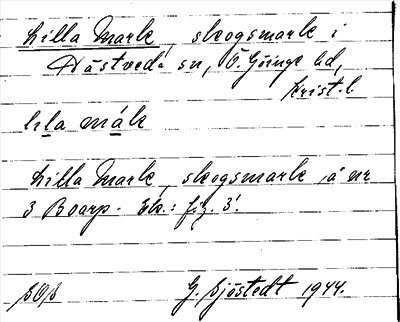 Lilla Mark, skogsmark i
Hästveda sn, Ö. Göinge hd,
Krist. l.
lɩla mák
Lilla Mark, skogsmark å nr
3 Boarp. Ek.: fig. 3.
SOS G. Sjöstedt 1944.